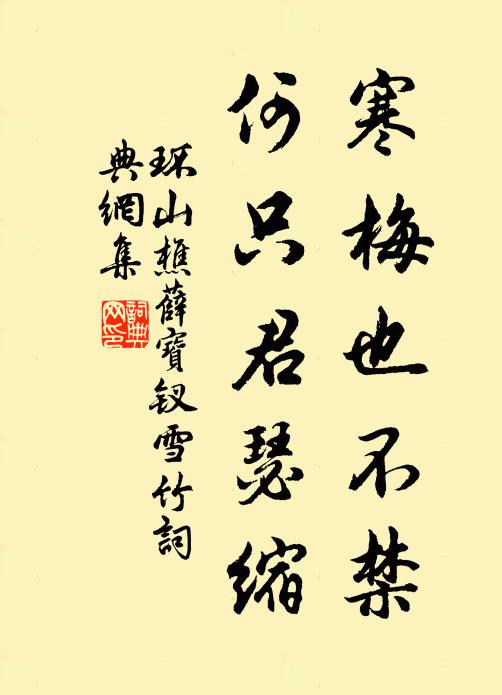 寒梅也不禁
何只君瑟縮
环山樵薛寶釵雪竹詞
典網集
詞典網印